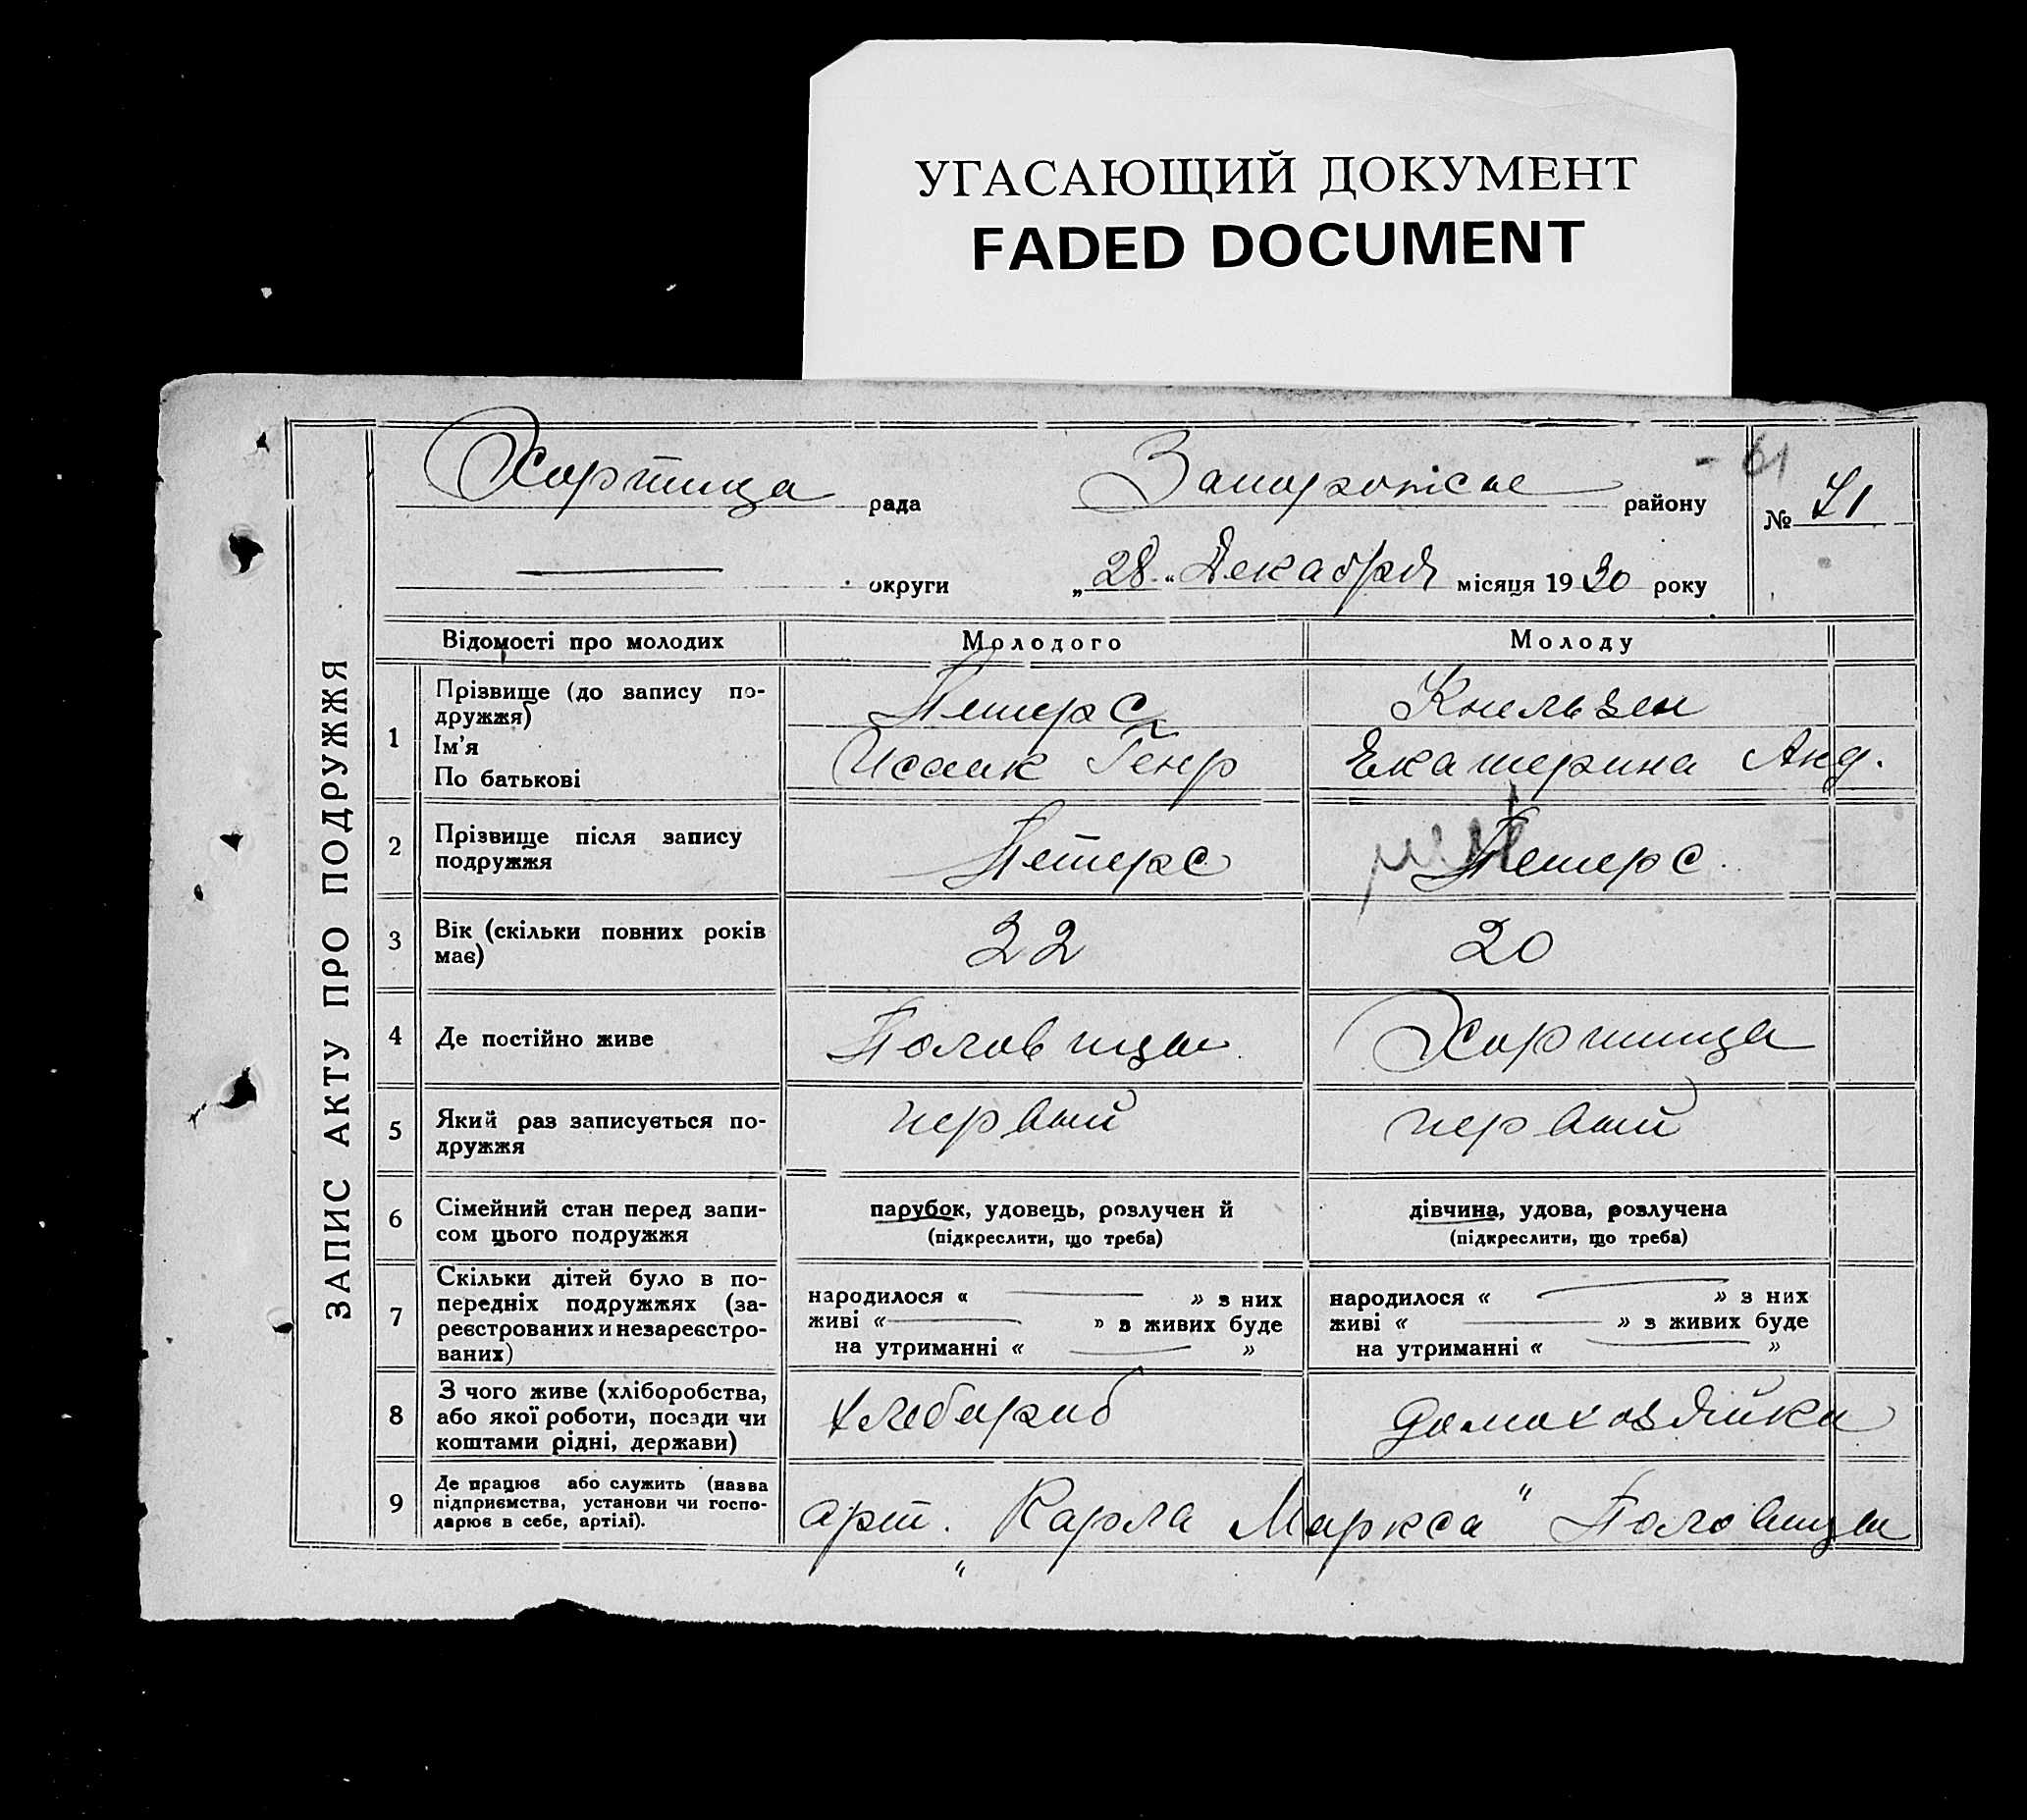 УГАСАЮЩИЙ ДОКУМЕНТ
FADED DOCUMENT
ЗАПИС АКТУ ПРО ПОДРУЖЖЯ
Хортица рада
району
- 61
№ 71
округи
„28“ Декабря місяця 1930 року
Відомості про молодих Молодого Молоду
1
Прізвище (до запису по-
дружжя)
Ім'я
По батькові
Петерс
Исаак Генр
Кнельзен
Екатерина Анд.
2
Прізвище після запису
подружжя
Петерс
Петерс
3
Вік (скільки повних років
має)
22
20
4
Де постійно живе
Половицы
Хортица
5
Який раз записується по-
дружжя
первый
первый
6
Сімейний стан перед запи-
сом цього подружжя
парубок, удовець, розлучен й
(підкреслити, що треба)
дівчина, удова, розлучена
(підкреслити, що треба)
7
Скільки дітей було в по-
передніх подружжях (за-
реєстрованих и незареєстро-
ваних)
народилося « » з них
живі « » в живих буде
на утриманні « »
народилося « » з них
живі « » з живих буде
на утриманні « »
8
З чого живе (хліборобства,
або якої роботи, посади чи
коштами рідні, держави)
хлебороб
домохозяйка
9
Де працює або служить (назва
підприємства, установи чи госпо-
дарює в себе, артілі).
арт. „Карла Маркса" Половицы